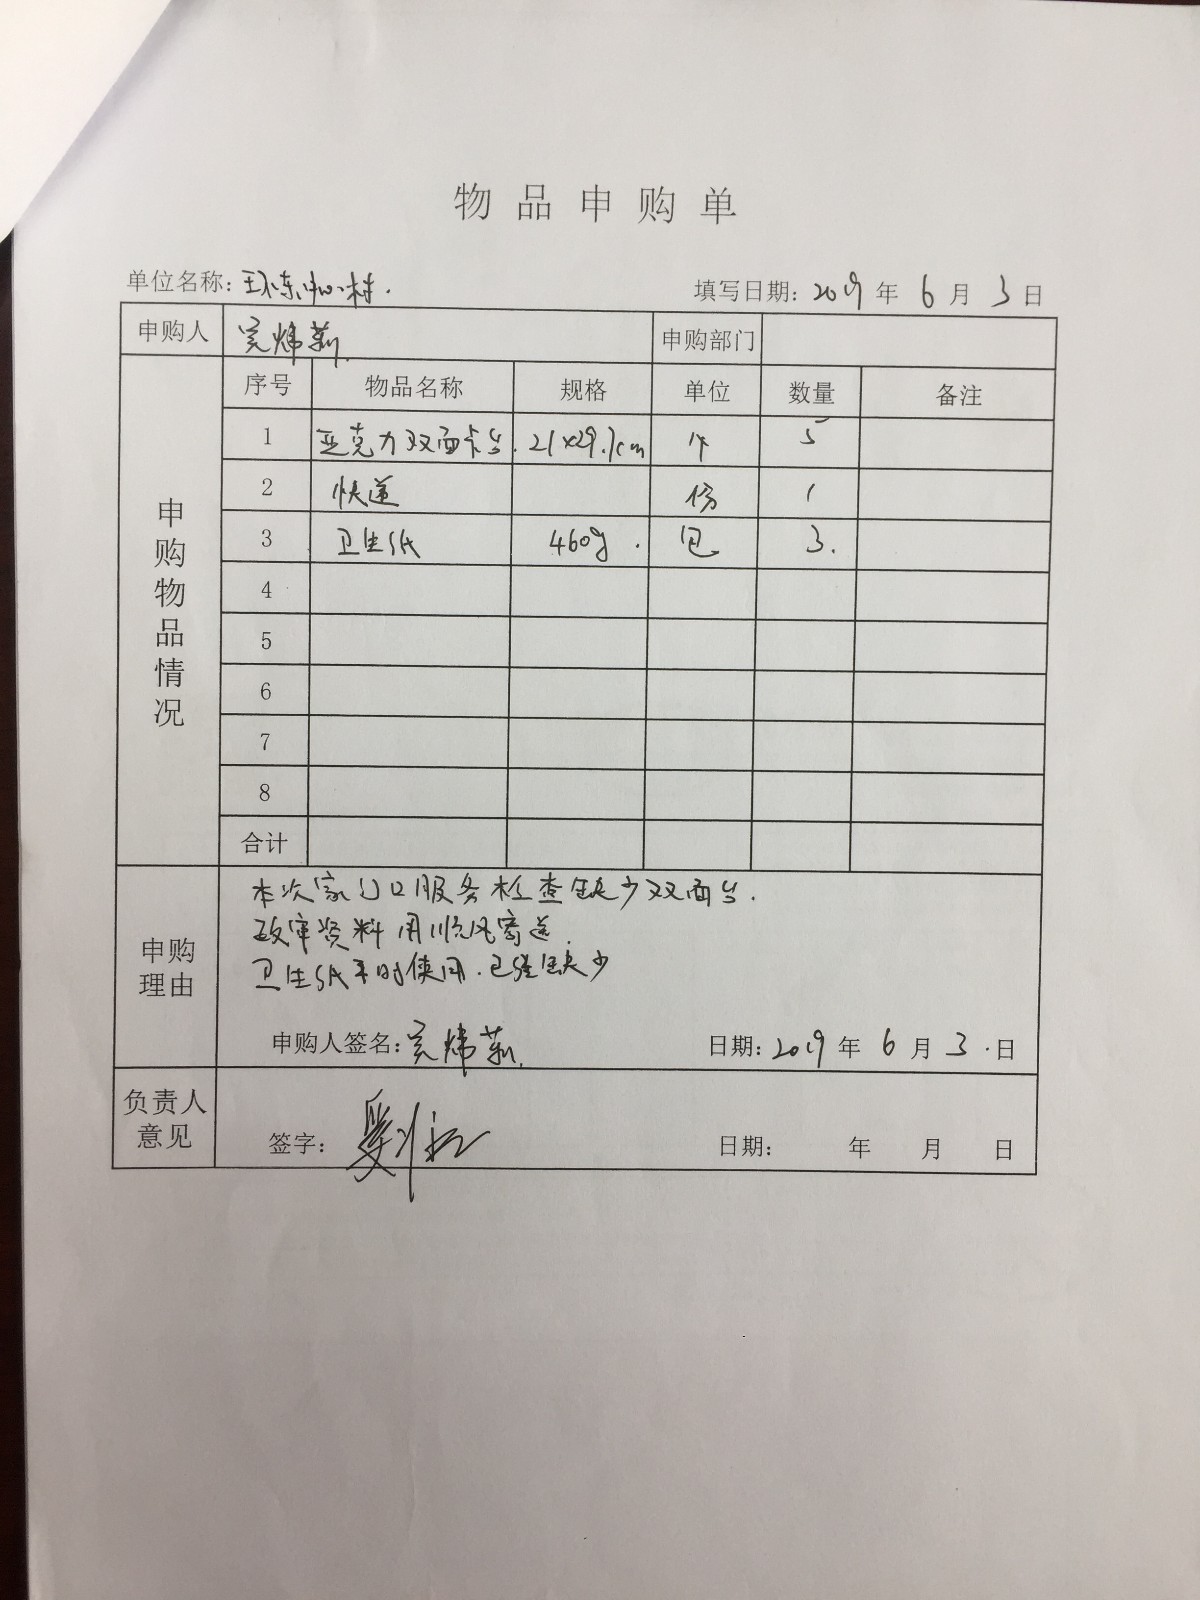 物品申购单
单位名称: 环东中心村. 填写日期: 2019 年 6 月 3 日
申购人 申购部门
申购物品情况
序号 物品名称 规格 单位 数量 备注
1 亚克力双面卡台. 21×29.7cm 个 5
2 快递 份 1
3 卫生纸 460g. 包 3.
4
5
6
7
8
合计
申购理由
本次家门口服务检查缺少双面台.
政审资料用顺风寄送.
卫生纸平时使用.已经缺少
申购人签名: 日期: 2019 年 6 月 3 日
负责人意见
签字: 日期: 年 月 日